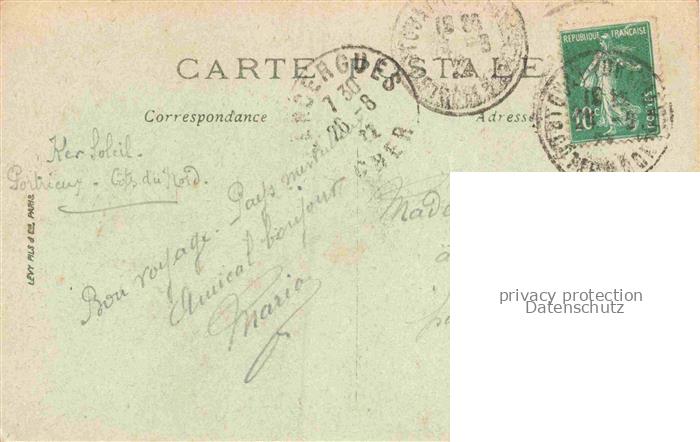 CARTE POSTALE
Correspondance
Adresse
REPUBLIQUE FRANÇAISE
10c
POSTES
7 30
26 -8
22
CHER
Ker Soleil.
Portrieux - Côtes du Nord.
Bon voyage. Pays
Amical bonjour
Maria
Mada
à
LEVY FILS & Cie, PARIS
privacy protection
Datenschutz